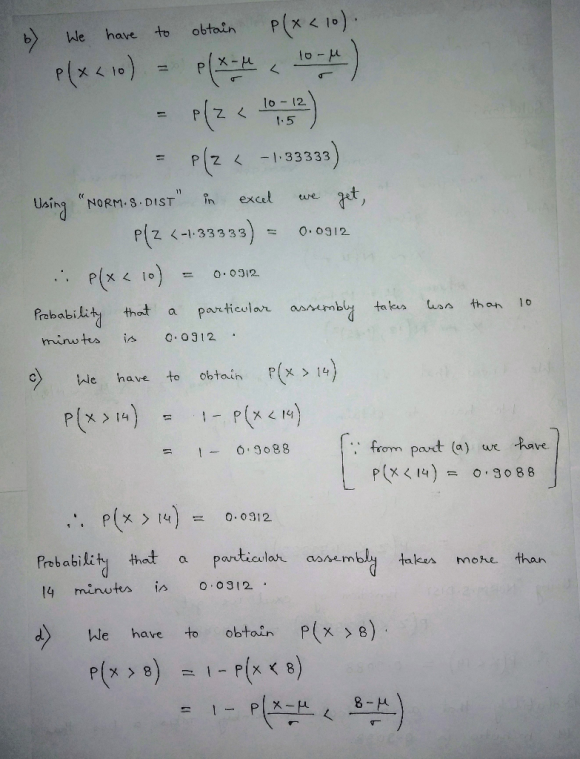 b) We have to obtain P(X < 10).
P(X < 10) = P((X-μ)/σ < (10-μ)/σ)
= P(Z < (10-12)/1.5)
= P(Z < -1.33333)
Using "NORM.S.DIST" in excel we get,
P(Z <-1.33333) = 0.0912
∴ P(X < 10) = 0.0912
Probability that a particular assembly takes less than 10
minutes is 0.0912 .
c) We have to obtain P(X > 14)
P(X > 14) = 1 - P(X < 14)
= 1 - 0.9088 [∵ from part (a) we have
P(X < 14) = 0.9088]
∴ P(X > 14) = 0.0912
Probability that a particular assembly takes more than
14 minutes is 0.0912 .
d) We have to obtain P(X > 8).
P(X > 8) = 1 - P(X < 8)
= 1 - P((X-μ)/σ < (8-μ)/σ)